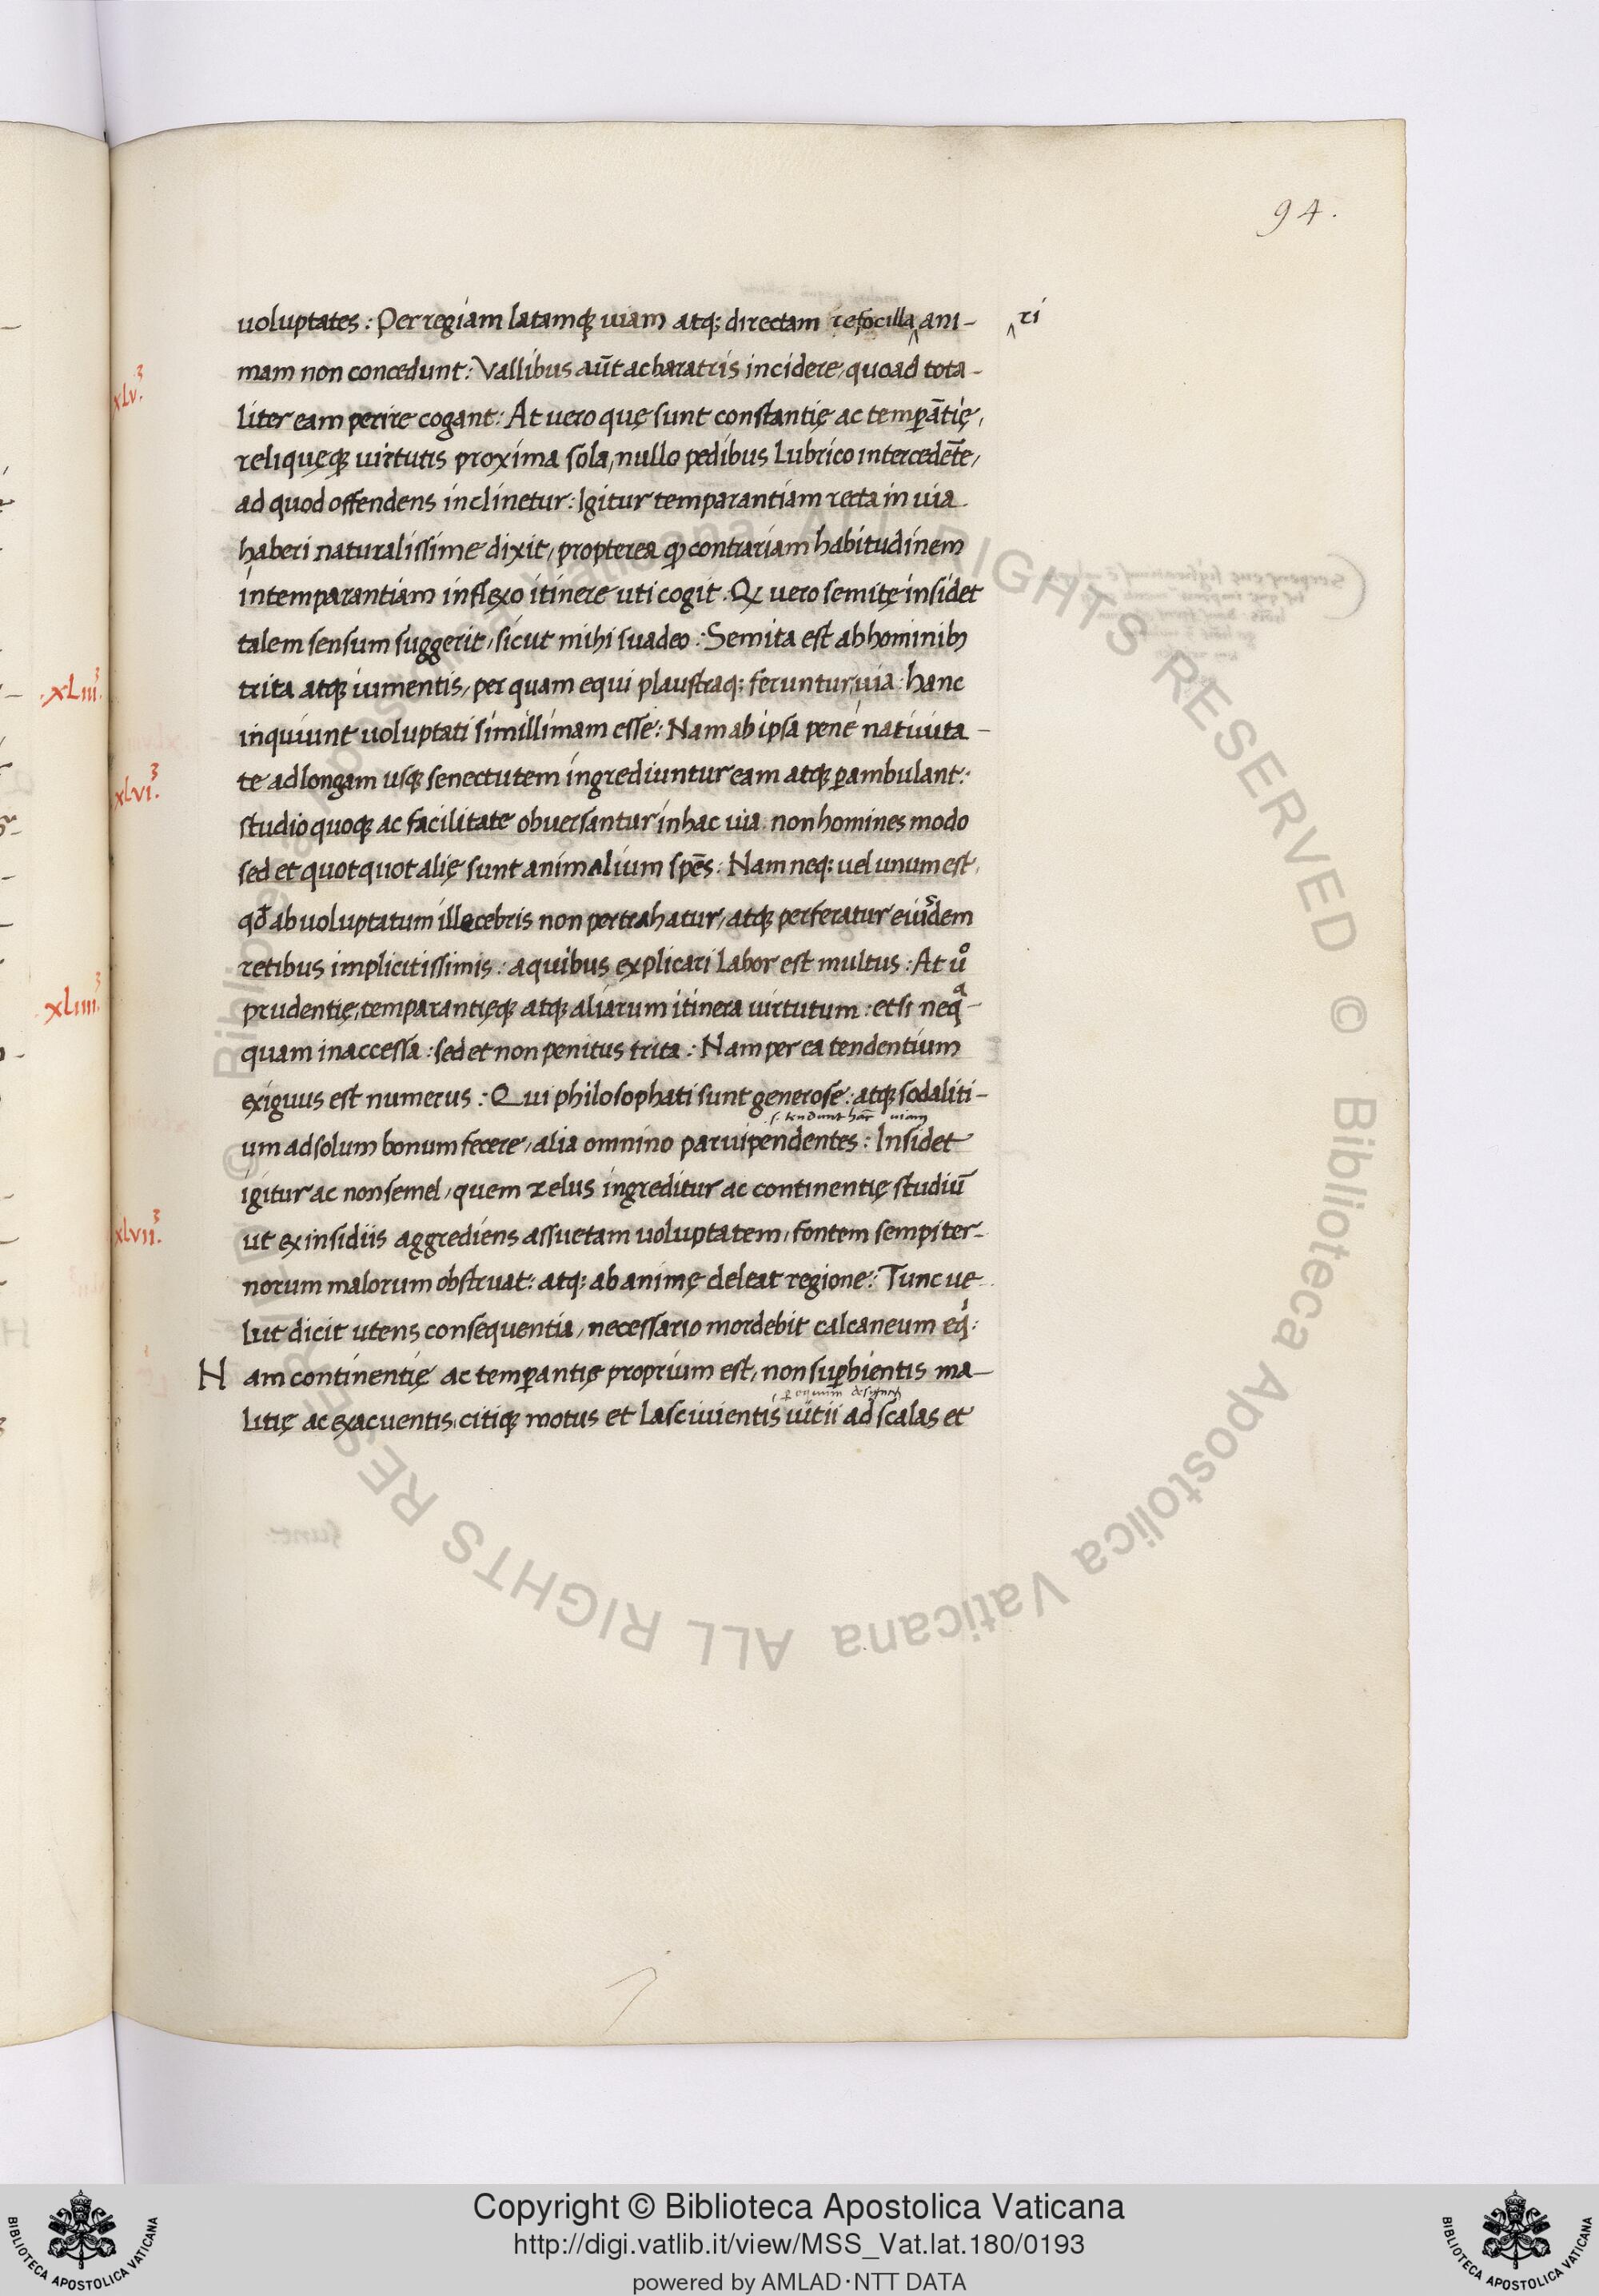 94.
uoluptates : Per regiam latamqꝫ uiam atqꝫ directam refocilla ani- ri
mam non concedunt : Vallibus aūt ac baratris incidere, quoad tota-
xlv.
liter eam perire cogant : At uero quę sunt constantię ac temꝑātię,
reliquęqꝫ uirtutis proxima sola, nullo pedibus lubrico intercedēte,
ad quod offendens inclinetur : Igitur temparantiam recta in uia
haberi naturalissime dixit, propterea ꝙ contrariam habitudinem
intemparantiam inflexo itinere uti cogit. Q uero semitę insidet
talem sensum suggerit, sicut mihi suadeo : Semita est ab hominibꝫ
trita atqꝫ iumentis, per quam equi plaustraqꝫ feruntur, uia : hanc
.xliii.
inquiunt uoluptati simillimam esse : Nam ab ipsa pene natiuita-
te ad longam usqꝫ senectutem ingrediuntur eam atqꝫ ꝑambulant :
xlvi.
studio quoqꝫ ac facilitate obuersantur in hac uia non homines modo
sed et quotquot alię sunt animalium spēs : Nam neqꝫ uel unum est,
qd̄ ab uoluptatum illecebris non pertrahatur, atqꝫ perferatur eiusdem
retibus implicitissimis : a quibus explicari labor est multus : At uº
prudentię, temparantięqꝫ atqꝫ aliarum itinera uirtutum : etsi neqª-
xliiii.
quam inaccessa : sed et non penitus trita : Nam per ea tendentium
exiguus est numerus : Qui philosophati sunt generose : atqꝫ sodaliti-
s. tendunt hāc uiam
um ad solum bonum fecere, alia omnino paruipendentes : Insidet
igitur ac non semel, quem zelus ingreditur ac continentię studiū
ut ex insidiis aggrediens assuetam uoluptatem, fontem sempiter-
xlvii.
norum malorum obstruat : atqꝫ ab animę deleat regione : Tunc ue
lut dicit utens consequentia, necessario mordebit calcaneum eqⁱ :
Nam continentię ac temꝑantię proprium est, non suꝑbientis ma-
litię ac exacuentis, citiqꝫ motus et lasciuientis uitii ad scalas et
© Biblioteca Apostolica Vaticana ALL RIGHTS RESERVED © Biblioteca Apostolica Vaticana ALL RIGHTS RESERVED
Copyright © Biblioteca Apostolica Vaticana
http://digi.vatlib.it/view/MSS_Vat.lat.180/0193
powered by AMLAD·NTT DATA
BIBLIOTECA APOSTOLICA VATICANA
BIBLIOTECA APOSTOLICA VATICANA